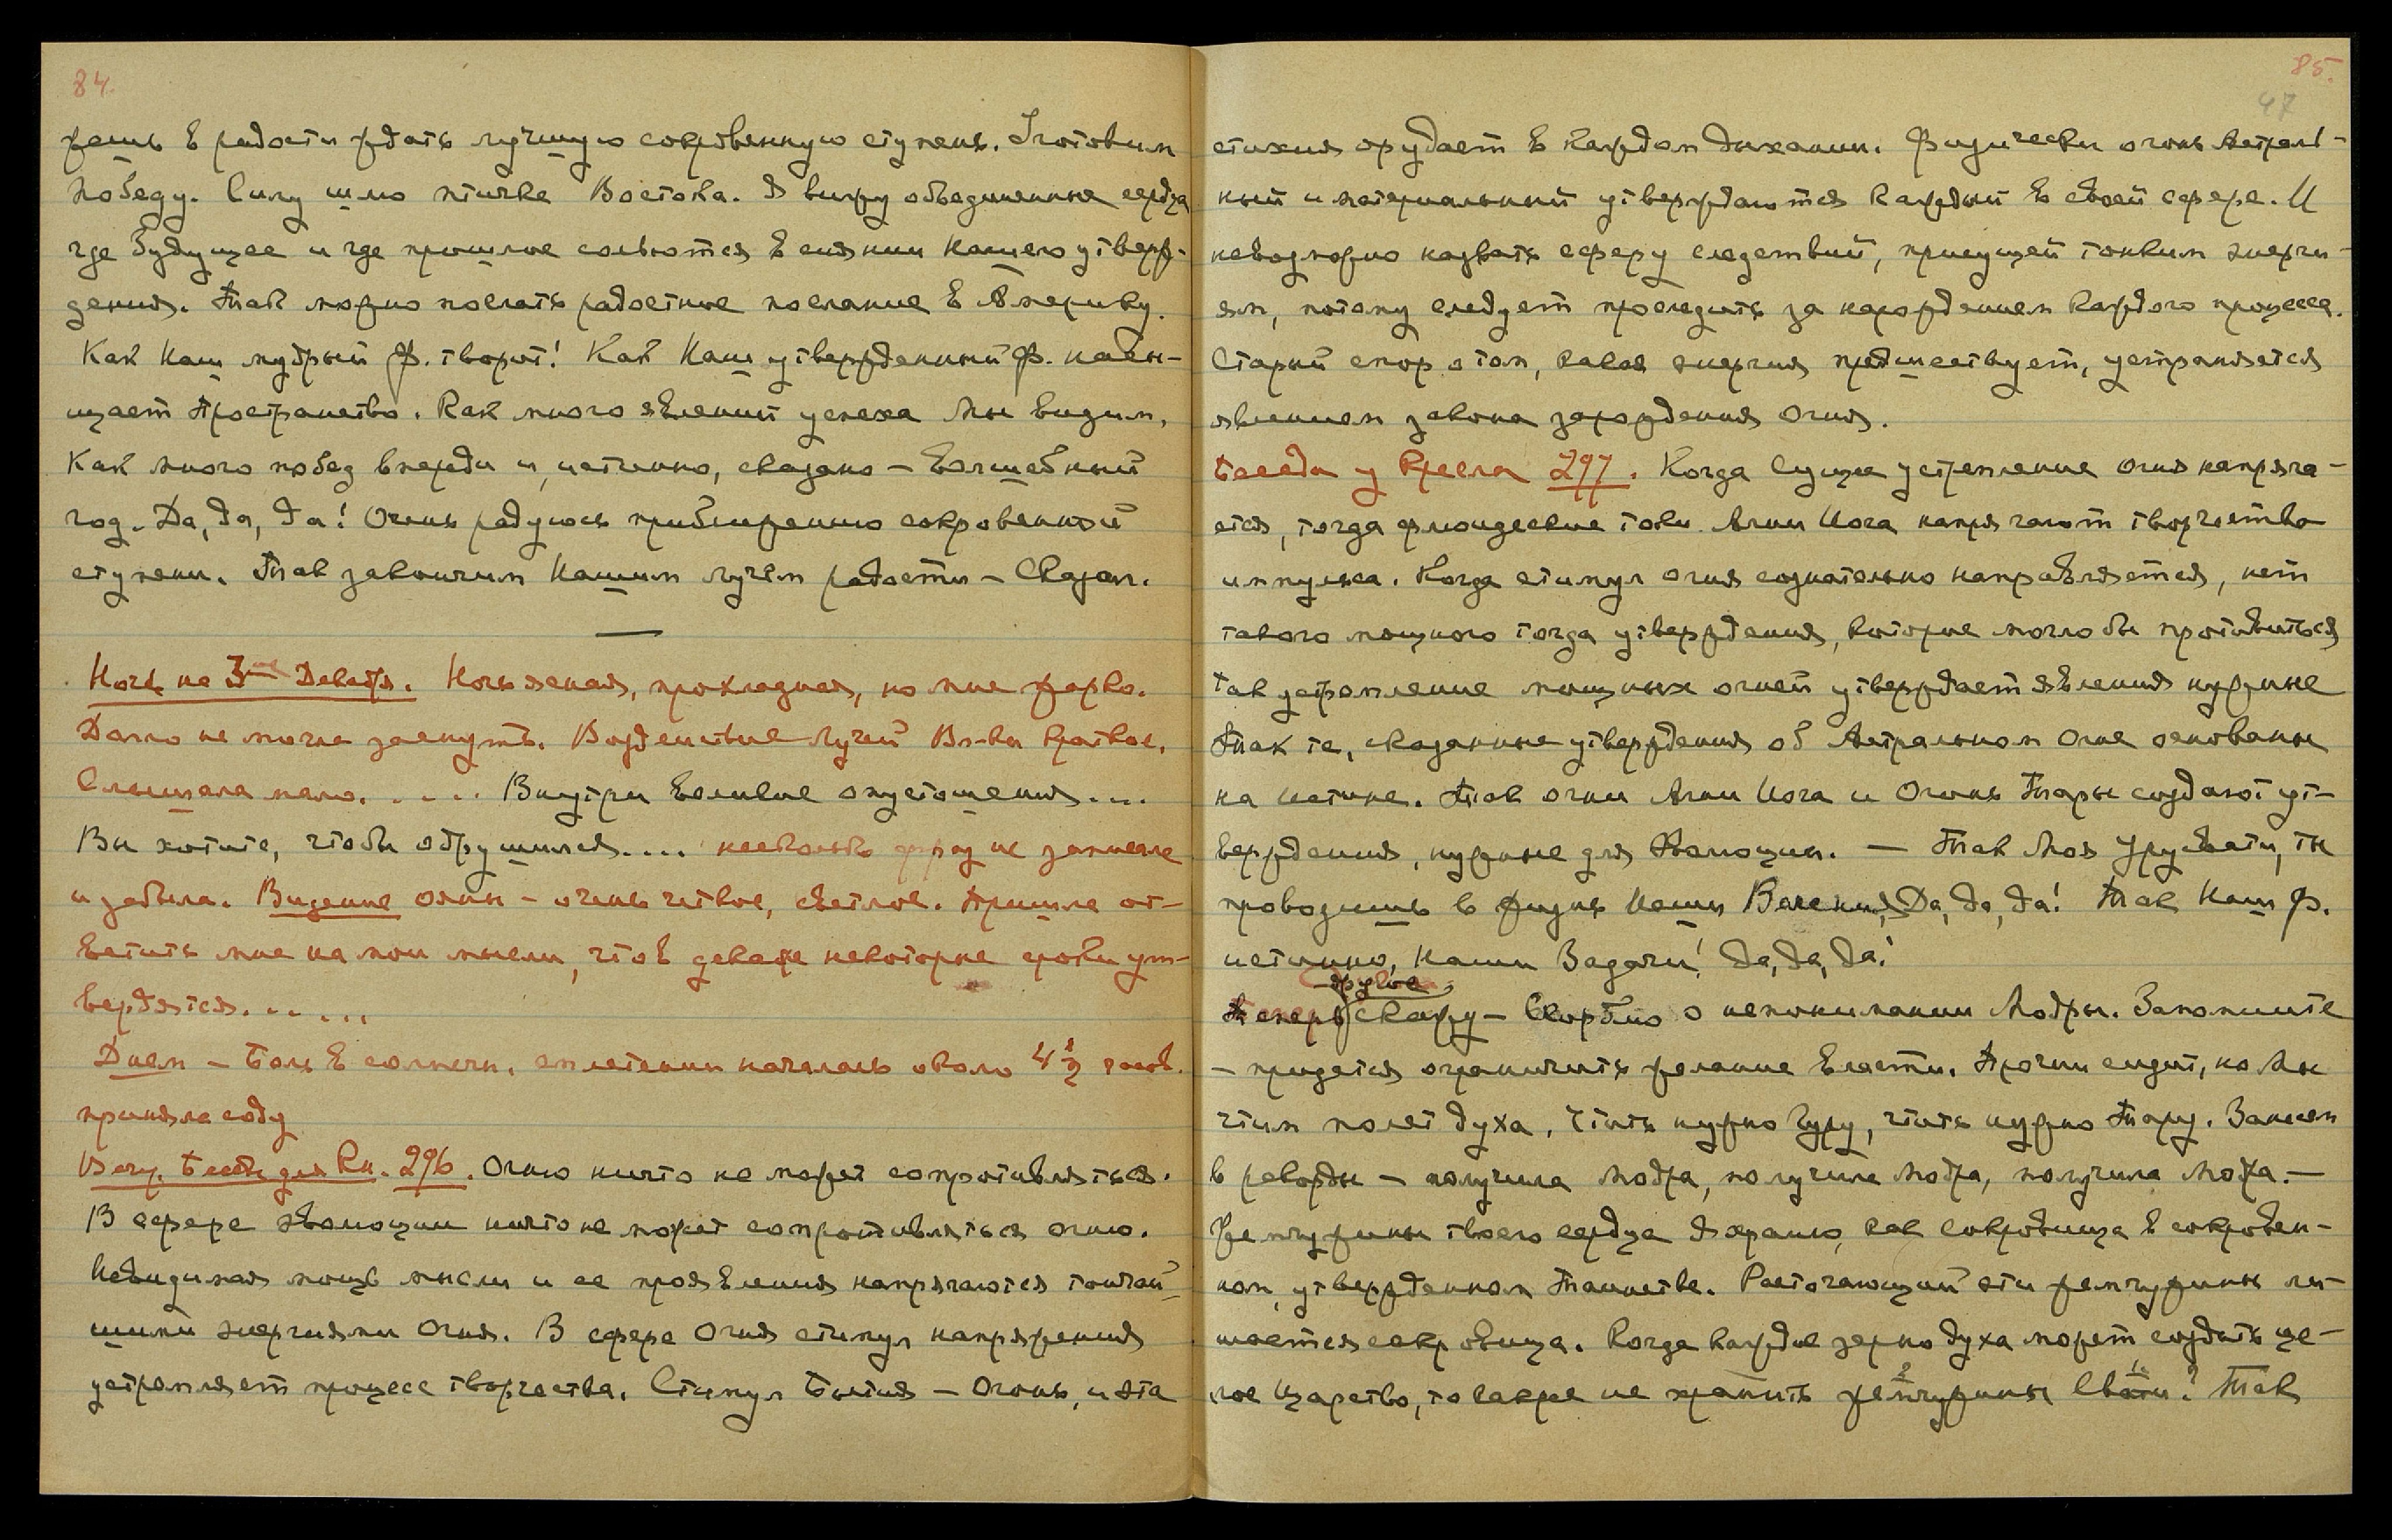 84.
жешь в радости ждать лучшую сокровенную ступень. Готовим
победу. Силу шлю птичке Востока. Я вижу объединенные сердца
где будущее и где прошлое сольются в сиянии Нашего утверж-
дения. Так можно послать радостное послание в Америку.
Как Наш мудрый Ф. творит! Как Наш утвержденный Ф. насы-
щает Пространство. Как много явлений успеха Мы видим,
Как много побед впереди и, истинно, сказано – волшебный
год. Да, да, да! Очень радуюсь приближению сокровенной
ступени. Так закончим Нашим лучём радости – Сказал.
—
Ночь на 3ье Декабря. Ночь ясная, прохладная, но мне жарко.
Долго не могла заснуть. Воздействие Лучей Вл-ки краткое.
Слышала мало. . . . . Внутри великие опустошения...
Вы хотите, чтобы обрушился.... несколько фраз не записала
и забыла. Видение Ояны – очень четкое, светлое. Пришла от-
ветить мне на мои мысли, что в декабре некоторые сроки ут-
вердятся. . . . . .
Днем – Боль в солнечн. сплетении началась около 4½ часов.
приняла соду
Веч. Беседа для Кн. 296. Огню ничто не может сопротивляться.
В сфере эволюции ничто не может сопротивляться огню.
Невидимая мощь мысли и ее проявления напрягаются тончай-
шими энергиями Огня. В сфере Огня стимул напряжения
устремляет процесс творчества. Стимул Бытия – Огонь, и эта
85.
47
стихия созидает в каждом дыхании. Физически огонь Астраль-
ный и материальный утверждаются каждый в своей сфере. И
невозможно назвать сферу следствий, присущей тонким энерги-
ям, потому следует проследить за нарождением каждого процесса.
Старый спор о том, какая энергия предшествует, устраняется
явлением закона зарождения Огня.
Беседа у Кресла 297. Когда Сущее устремление огня напряга-
ется, тогда флюидические токи Агни Йога напрягают творчество
импульса. Когда стимул огня сознательно направляется, нет
такого мощного тогда утверждения, которое могло бы противиться
так устремление мощных огней утверждает явления нужные
Так те, сказанные утверждения об Астральном Огне основаны
на Истине. Так огни Агни Йога и Огонь Тары создают ут-
верждения, нужные для Эволюции. – Так Моя Урусвати, ты
проводишь в жизнь Наши Веления, Да, да, да! Так Наш Ф.
истинно, Наши Задачи! Да, да, да!
другое
Теперь скажу – Скорблю о непонимании Модры. Запомните
– придется ограничить желание власти. Прочии сидят, но Мы
чтим полет духа, чтить нужно Гуру, чтить нужно Тару. Занесем
в рекорды – получила Модра, получила Модра, получила Модра. –
Жемчужины твоего сердца Я храню, как Сокровища в сокровен-
ном, утвержденном Таинстве. Расточающий эти жемчужины ли-
шается сокровища. Когда каждое зерно духа может создать це-
лое Царство, то как же не хранить жемчужины Свати? Так